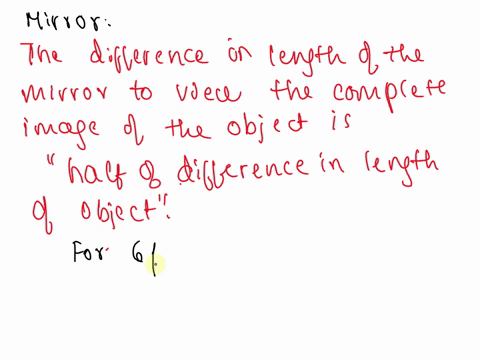 Mirror:
The difference in length of the
mirror to view the complete
image of the object is
"half of difference in length
of object".
For 6